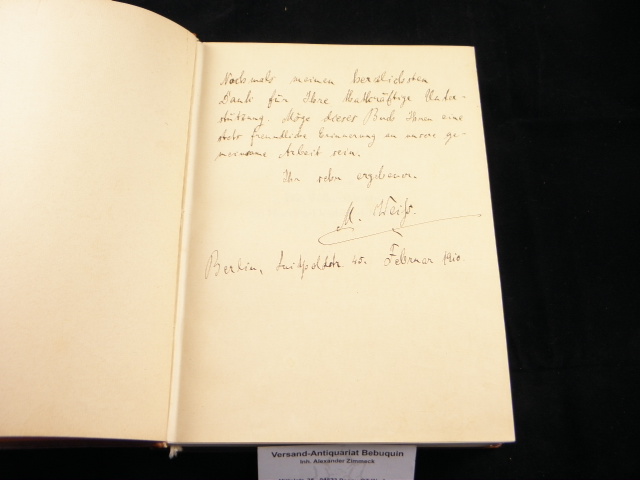 Nochmals meinen herzlichsten
Dank für Ihre thatkräftige Unter-
stützung. Möge dieses Buch Ihnen eine
stets freundliche Erinnerung an unsere ge-
meinsame Arbeit sein.
Ihr sehr ergebener
M. Weiß.
Berlin, Luitpoldstr. 40. Februar 1910.
Versand-Antiquariat Bebuquin
Inh. Alexander Zimmeck